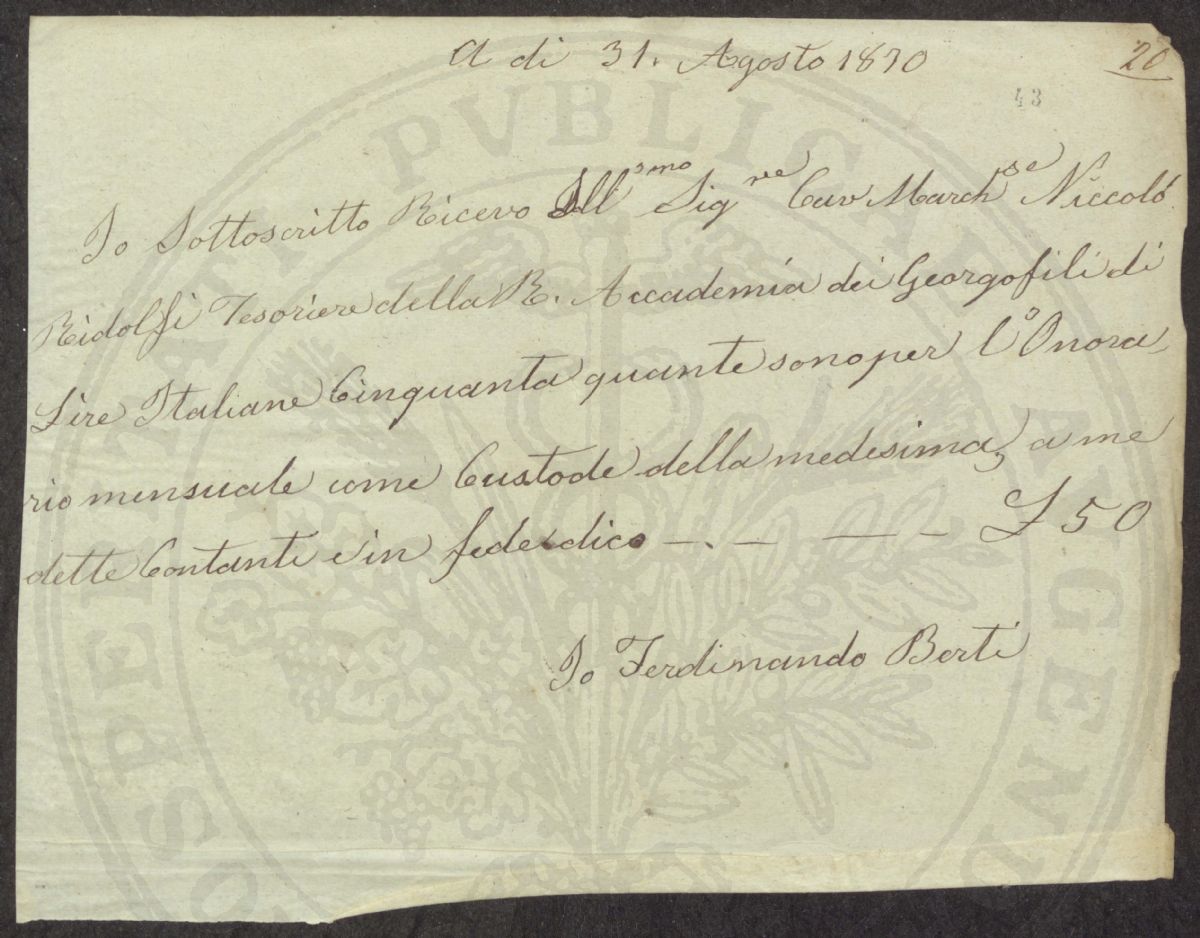 A di 31. Agosto 1870
20
43
Io Sottoscritto Ricevo Ill^smo Sig^re Cav March^se Niccolò
Ridolfi Tesoriere della R. Accademia dei Georgofili di
Lire Italiane Cinquanta quante sono per l'Onora
rio mensuale come Custode della medesima, a me
dette Contanti e in fede dico —.— — — £ 50
Io Ferdinando Berti
PVBLICAE AVGENDAE
PROSPERITATI